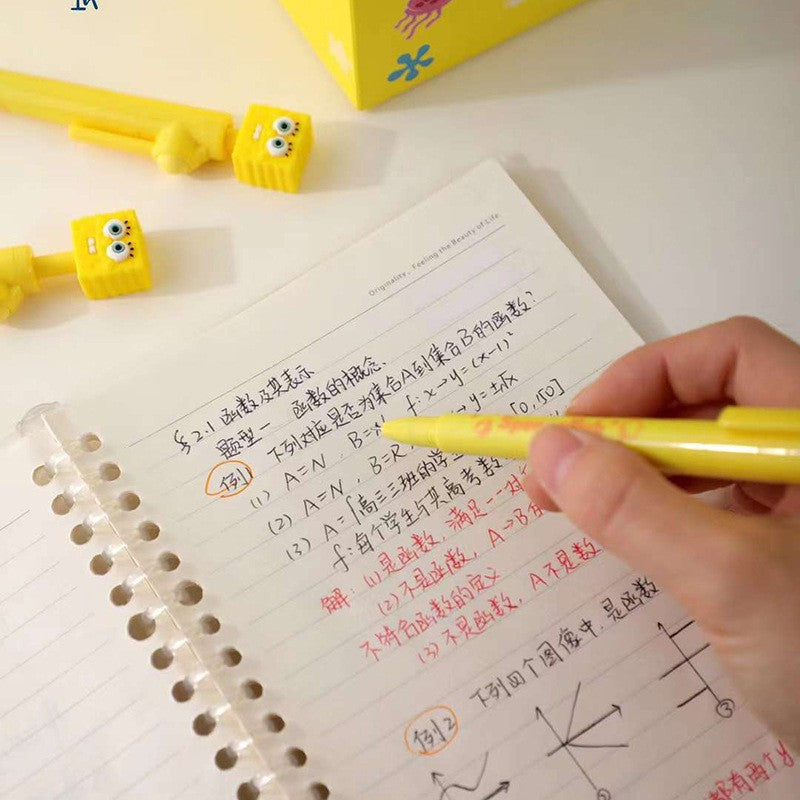 Originality , Feeling the Beauty of Life
§2.1 函数及其表示
题型一 函数的概念.
例1 下列对应是否为集合A到集合B的函数?
(1) A=N , B=N f:x→y=(x-1)²
(2) A=N , B=R →y=±√x
(3) A={高三三班的学生 [0,150]
f:每个学生与其高考数
解: (1)是函数, 满足一一对
(2)不是函数, A→B
不符合函数的定义
(3)不是函数, A不是数
例2 下列四个图像中, 是函数
③
都有两个y